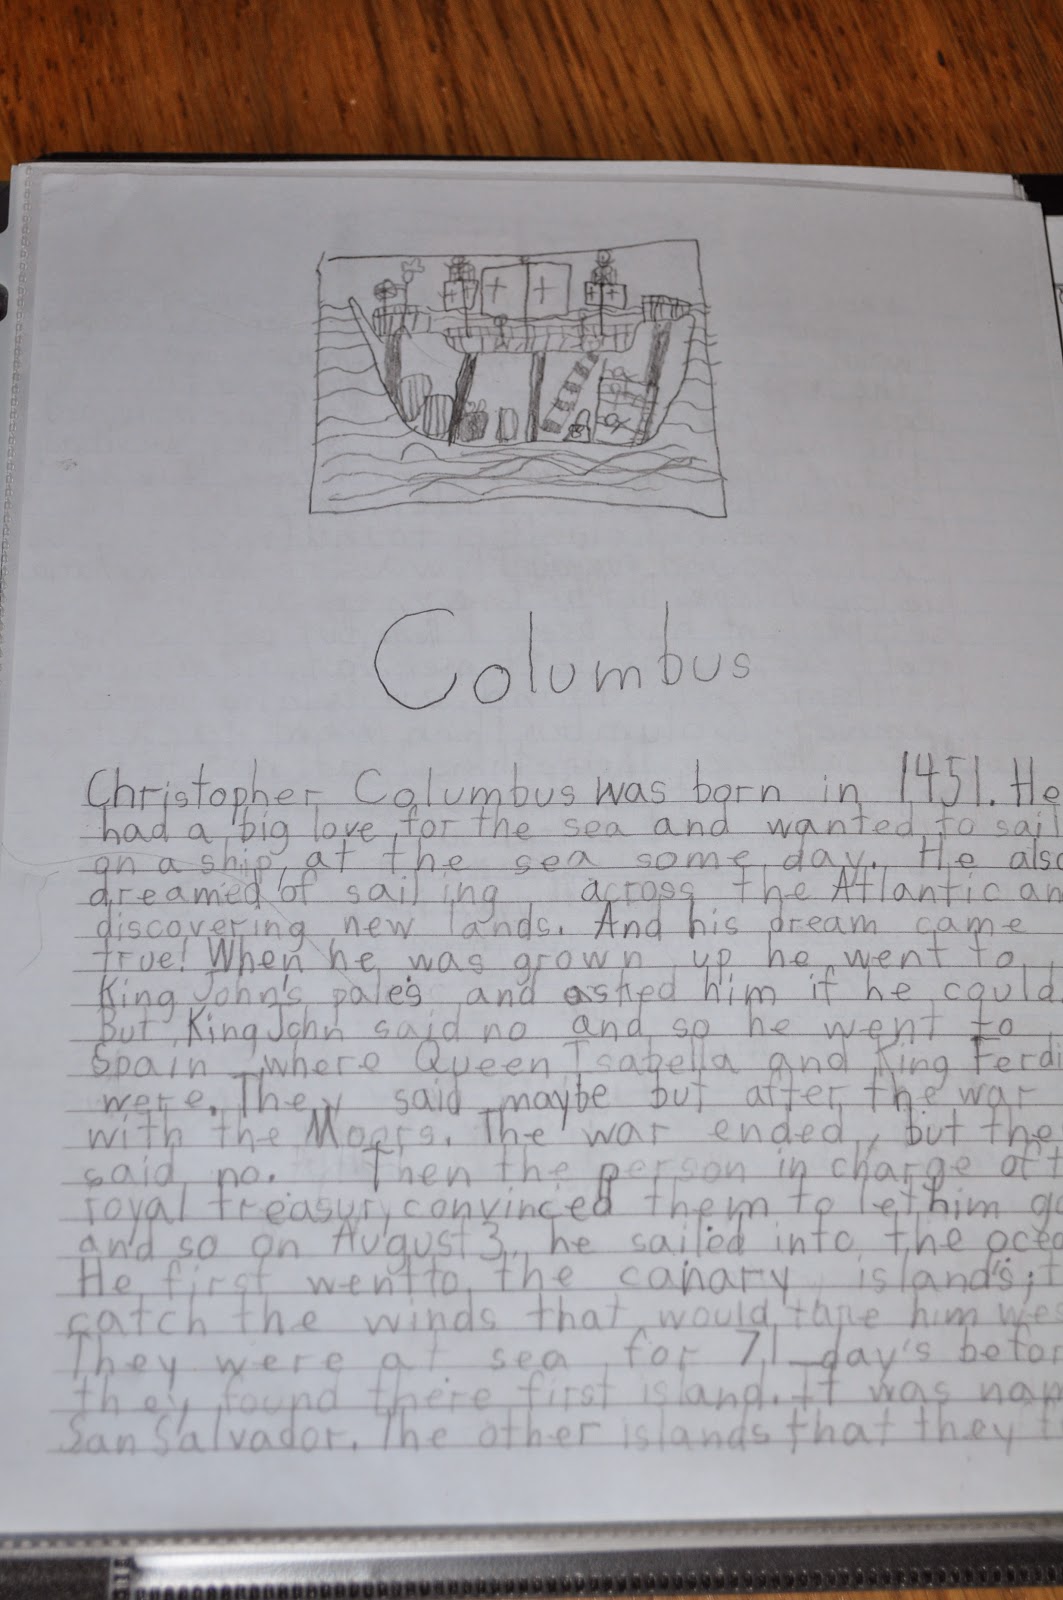 Columbus
Christopher Columbus was born in 1451. He
had a big love for the sea and wanted to sail
on a ship at the sea some day. He also
dreamed of sailing across the Atlantic an
discovering new lands. And his dream came
true! When he was grown up he went to
King John's pales and asked him if he could.
But King John said no and so he went to
Spain where Queen Isabella and King Ferdi
were. They said maybe but after the war
with the Moors. The war ended, but the
said no. Then the person in charge of t
royal treasury convinced them to let him go
and so on August 3, he sailed into the ocea
He first went to the canary island's, t
catch the winds that would take him we
They were at sea for 71 day's befor
they found there first island. It was nam
San Salvador. The other islands that they